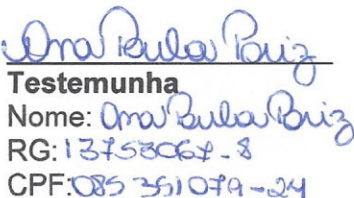 Ana Paula Ruiz
Testemunha
Nome: Ana Paula Ruiz
RG: 13753067-8
CPF: 085 351079-24